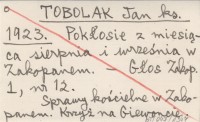 TOBOLAK Jan ks.
1923. Pokłosie z miesią-
ca sierpnia i września w
Zakopanem. – Głos Zakop.
1, nr 12.
Sprawy kościelne w Zako-
panem. Krzyż na Giewoncie.